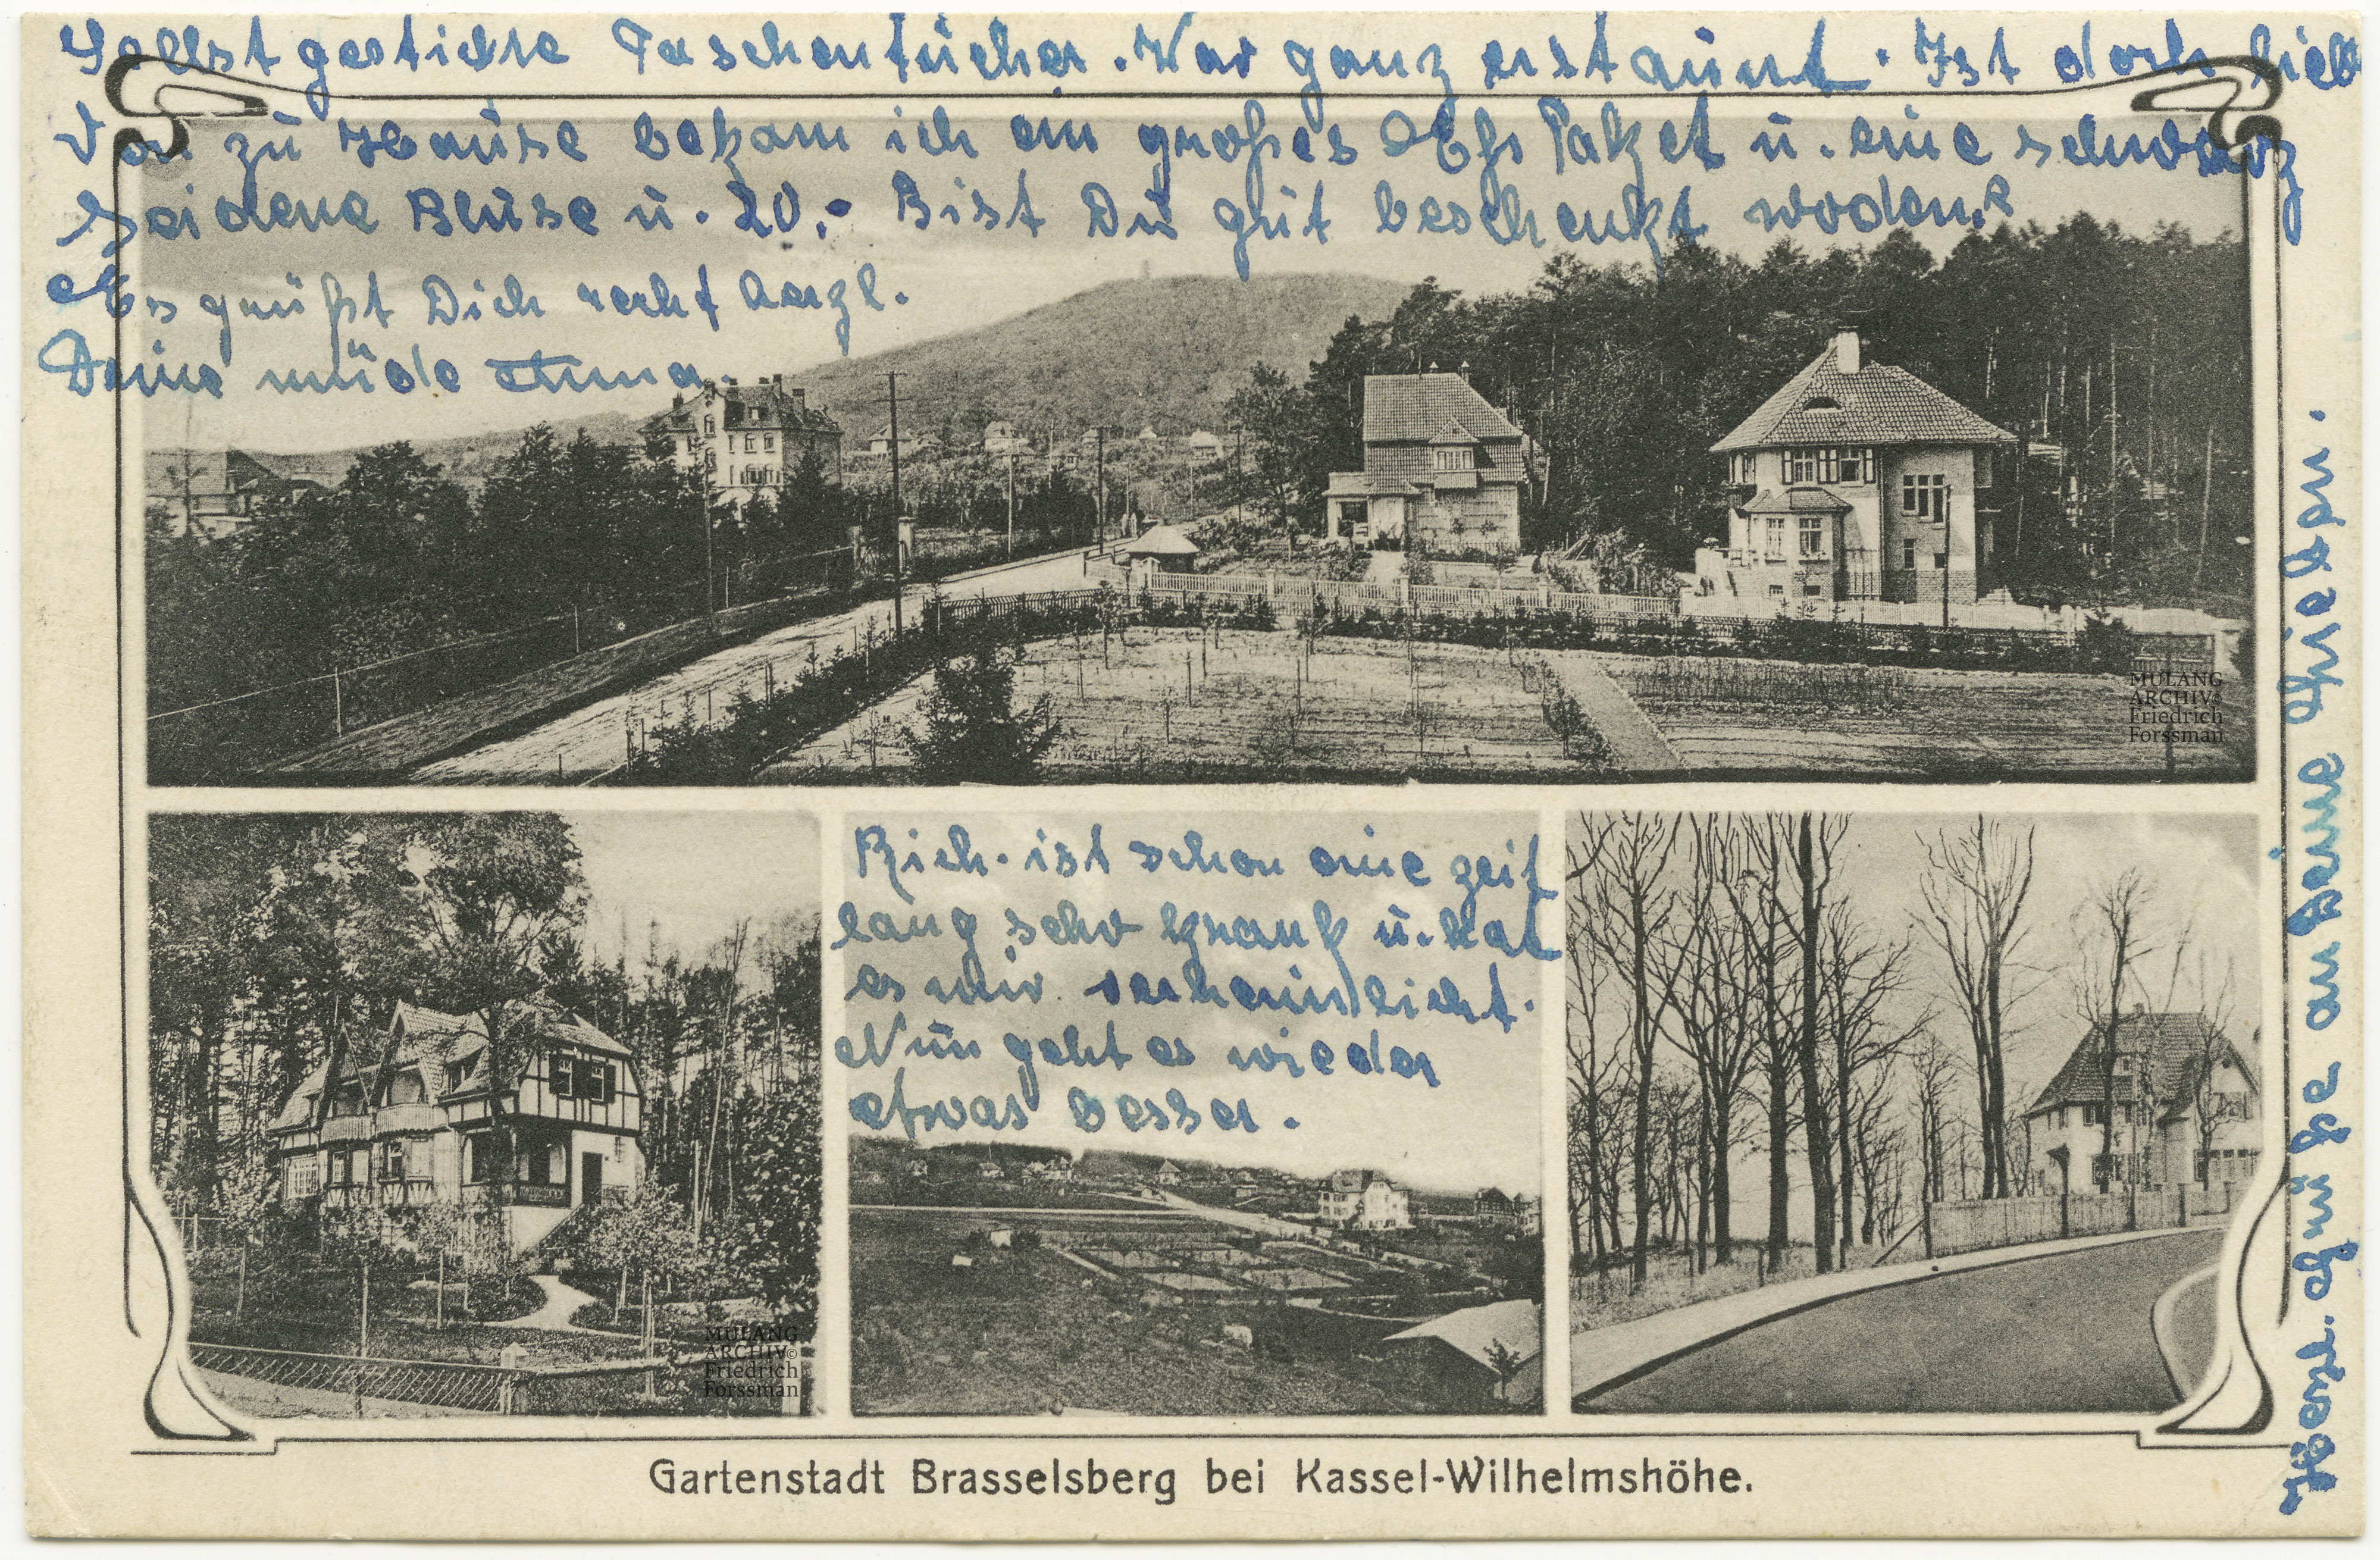 Selbst gestickte Taschentücher. War ganz erstaunt. Ist doch lieb
Von zu Hause bekam ich ein großes Eß Paket u. eine schwarz
seidene Bluse u. 20.- Bist Du gut beschenkt woden.?
Es grüßt Dich recht herzl.
Deine müde Anna.
MULANG
ARCHIV©
Friedrich
Forssman
Rich. ist schon eine zeit
lang sehr krank u. hat
es mir verheimlicht.
Nun geht es wieder
etwas besser.
MULANG
ARCHIV©
Friedrich
Forssman
Herzl. Grüße an Deine
Gartenstadt Brasselsberg bei Kassel-Wilhelmshöhe.